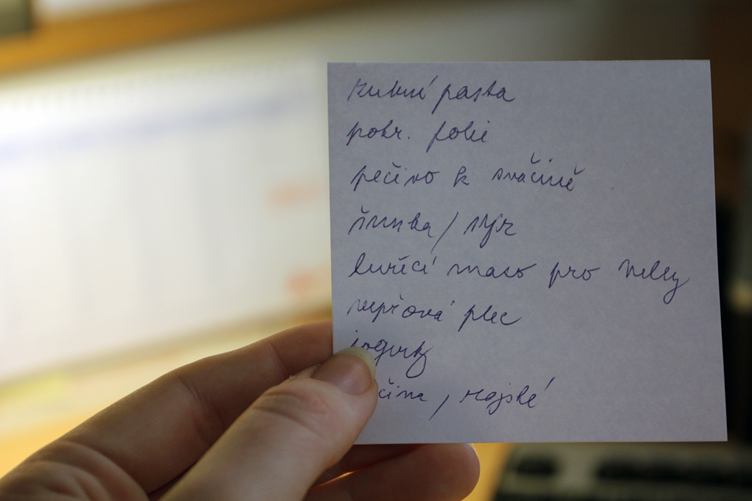 zubní pasta
potr. folie
pečivo k svačině
šunka / sýr
kuřecí maso pro Nelly
vepřová plec
jogurty
rajské